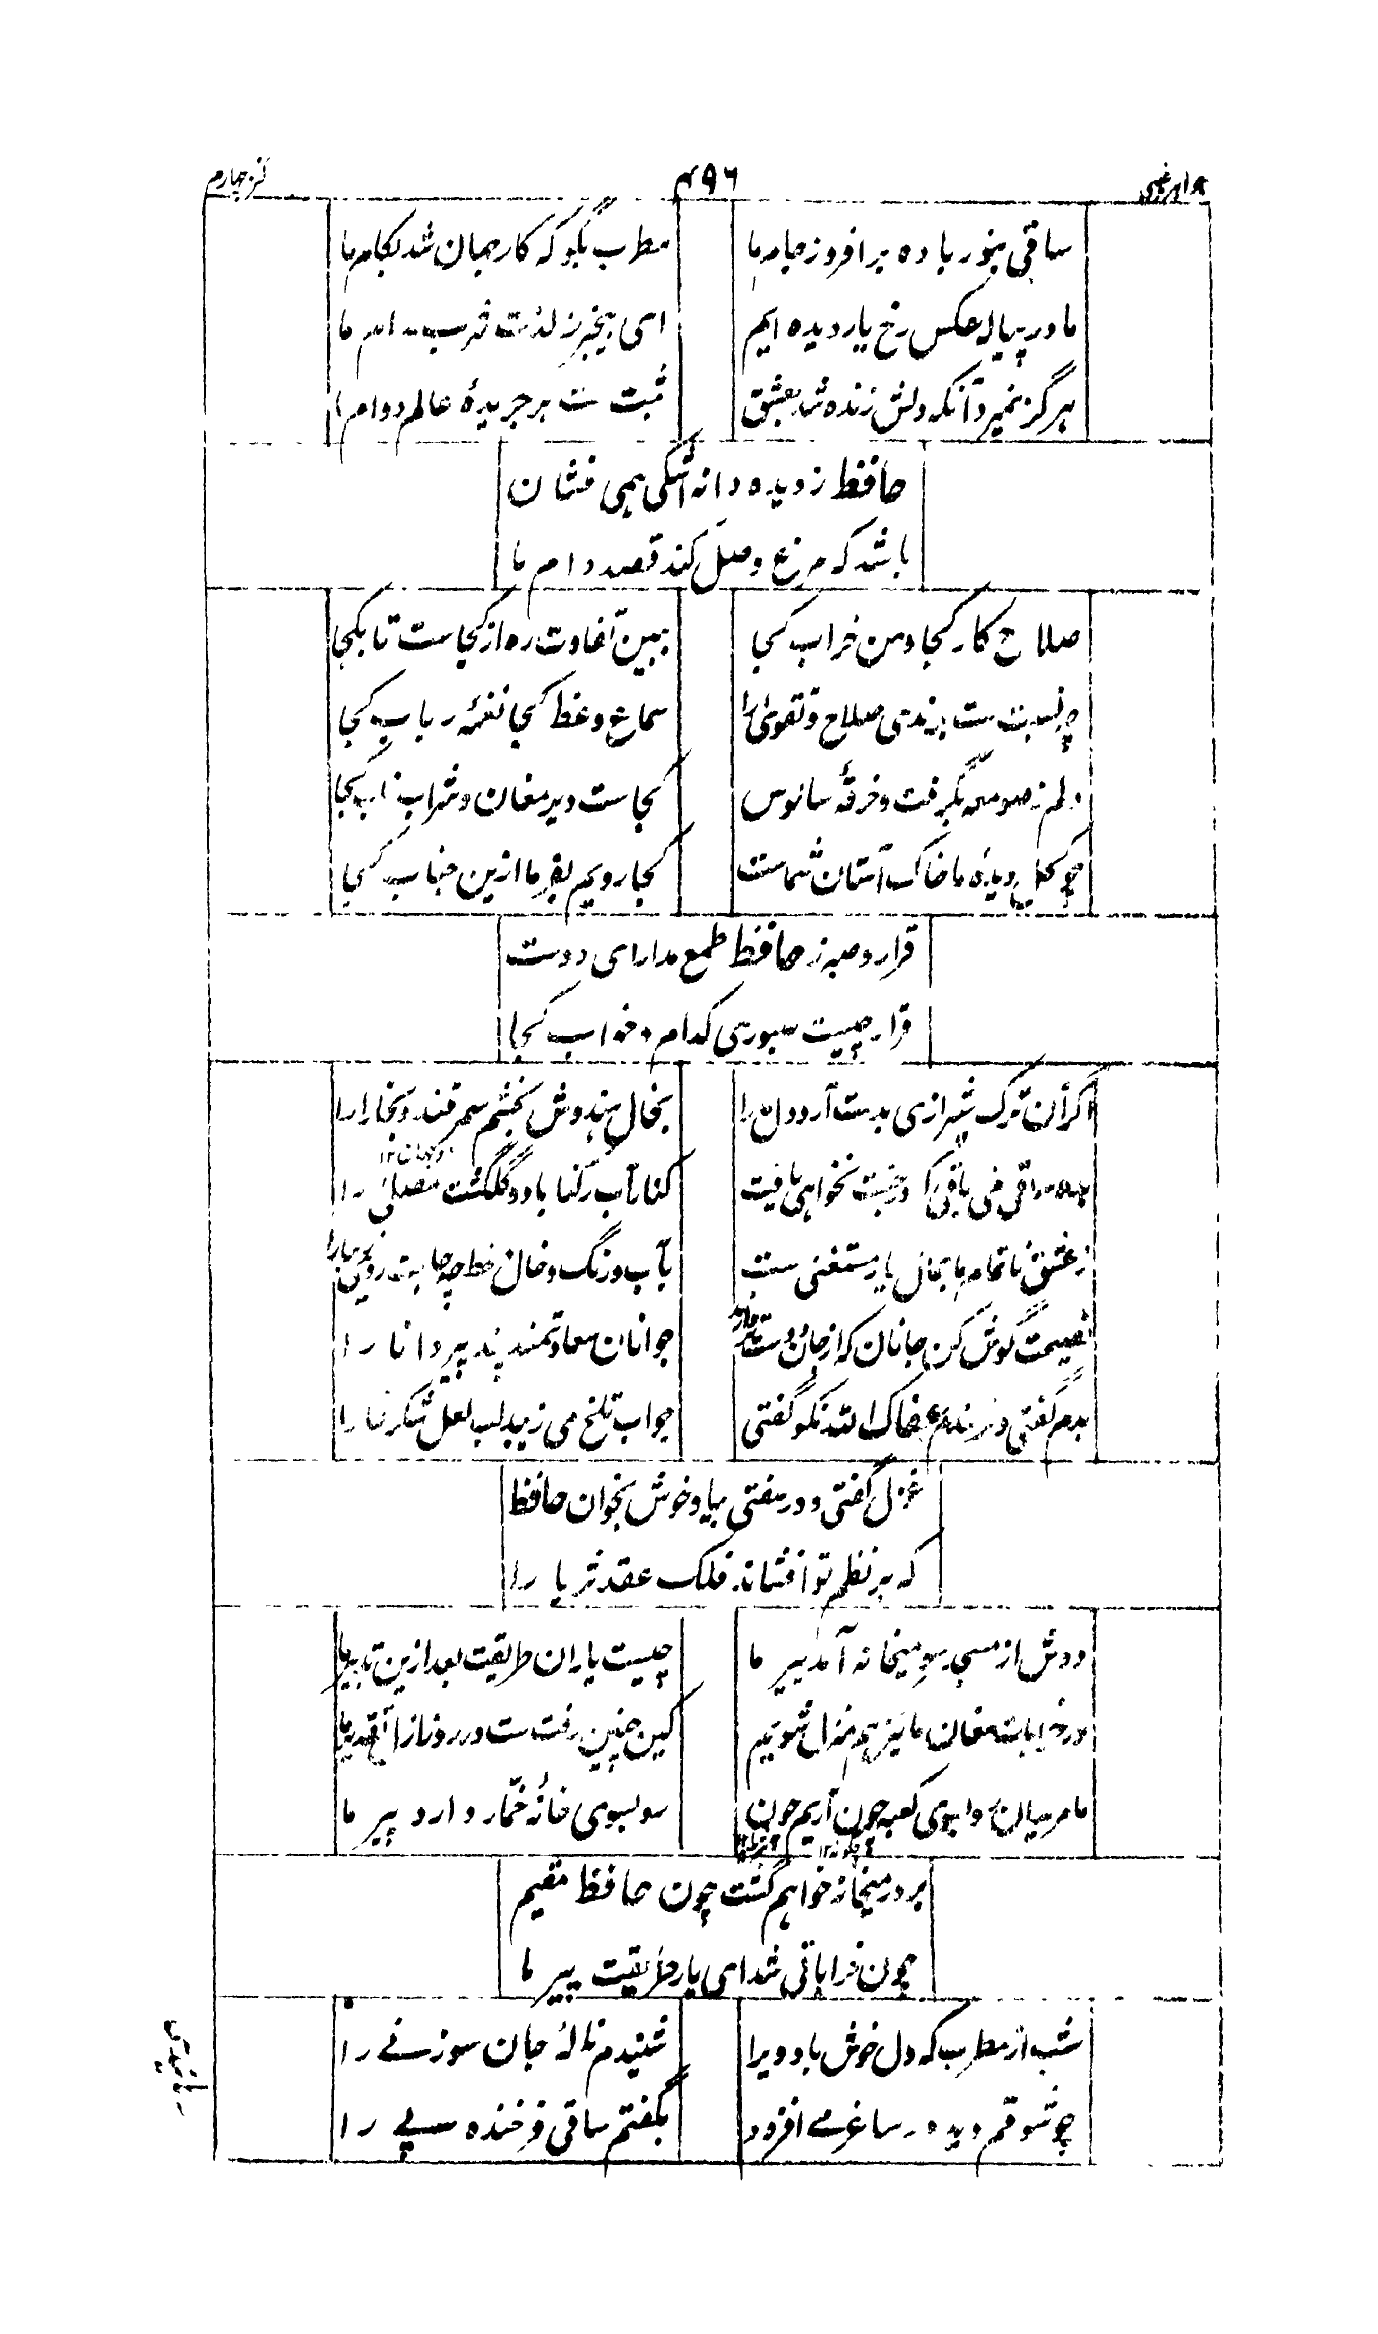 جواهر خمسی
۴۹۶
گنز چهارم
ساقی بنور باده برافروز جام ما
مطرب بگو که کار جهان شد بکام ما
ما در پیاله عکس رخ یار دیده ایم
ای بیخبر ز لذت شرب مدام ما
هرگز نمیرد آنکه دلش زنده شد بعشق
ثبت ست بر جریدهٔ عالم دوام ما
حافظ ز دیده دانه اشکی همی فشان
باشد که مرغ وصل کند قصد دام ما
صلاح کار کجا و من خراب کجا
ببین تفاوت ره از کجاست تا بکجا
چه نسبت ست برندی صلاح و تقوی را
سماع وعظ کجا نغمه رباب کجا
دلم ز صومعه بگرفت و خرقهٔ سالوس
کجاست دیر مغان و شراب ناب کجا
چو کحل دیدهٔ ما خاک آستان شماست
کجا رویم بفرما ازین جناب کجا
قرار و صبر ز حافظ طمع مدار ای دوست
قرار چیست صبوری کدام و خواب کجا
اگر آن ترک شیرازی بدست آرد دل ما را
بخال هندوش بخشم سمرقند و بخارا را
بده ساقی می باقی که در جنت نخواهی یافت
کنار آب رکنا باد و گلگشت مصلی را
ز عشق ناتمام ما جمال یار مستغنی ست
بآب و رنگ و خال و خط چه حاجت روی زیبا را
نصیحت گوش کن جانان که از جان دوست تر دارند
جوانان سعادتمند پند پیر دانا را
بدم گفتی و خرسندم عفاک الله نکو گفتی
جواب تلخ می زیبد لب لعل شکر خا را
غزل گفتی و در سفتی بیا و خوش بخوان حافظ
که بر نظم تو افشاند فلک عقد ثریا را
دوش از مسجد سوی میخانه آمد پیر ما
چیست یاران طریقت بعد ازین تدبیر ما
در خرابات مغان ما نیز هم منزل شویم
کین چنین رفت ست در روز ازل تقدیر ما
ما مریدان رو بسوی کعبه چون آریم چون
رو بسوی خانهٔ خمّار دارد پیر ما
بر در میخانه خواهم گشت چون حافظ مقیم
چون خراباتی شد ای یار طریقت پیر ما
شب از مطرب که دل خوش باد ویرا
شنیدم نالهٔ جان سوز نے را
چو شوقم دید در ساغر مے افزود
بگفتم ساقی فرخنده پے را